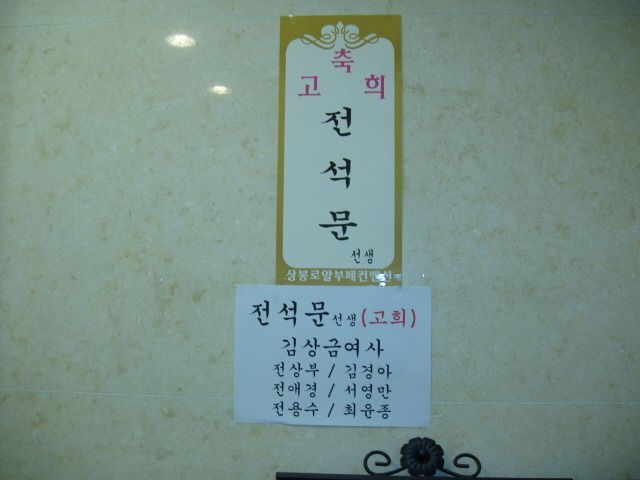 축
고 희
전
석
문
선생
상봉로얄부페컨벤션
전석문선생(고희)
김상금여사
전상부 / 김경아
전애경 / 서영만
전용수 / 최윤종